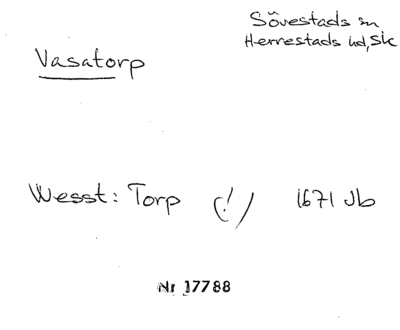 Sövestads sn
Herrestads hd, Sk
Vasatorp
Wesst: Torp (!) 1671 Jb
Nr 17788